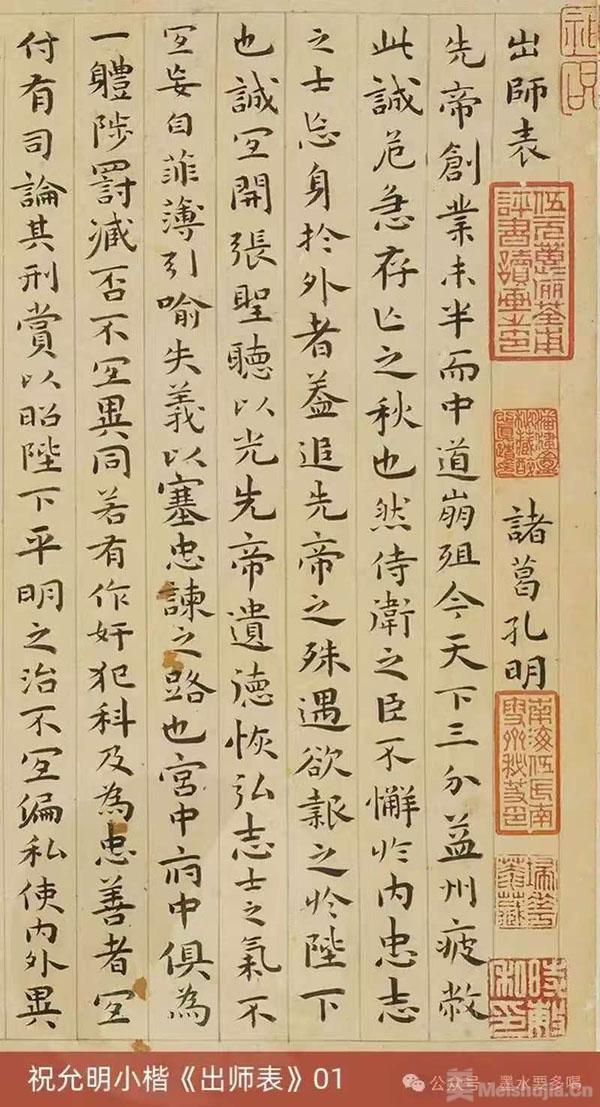 出師表 諸葛孔明
先帝創業未半而中道崩殂今天下三分益州疲敝
此誠危急存亡之秋也然侍衛之臣不懈於内忠志
之士忘身於外者蓋追先帝之殊遇欲報之於陛下
也誠宜開張聖聽以光先帝遺德恢弘志士之氣不
宜妄自菲薄引喻失義以塞忠諫之路也宮中府中俱為
一體陟罰臧否不宜異同若有作奸犯科及為忠善者宜
付有司論其刑賞以昭陛下平明之治不宜偏私使内外異
祝允明小楷《出师表》01
公众号·墨水要多唱
Meishujia.Cn